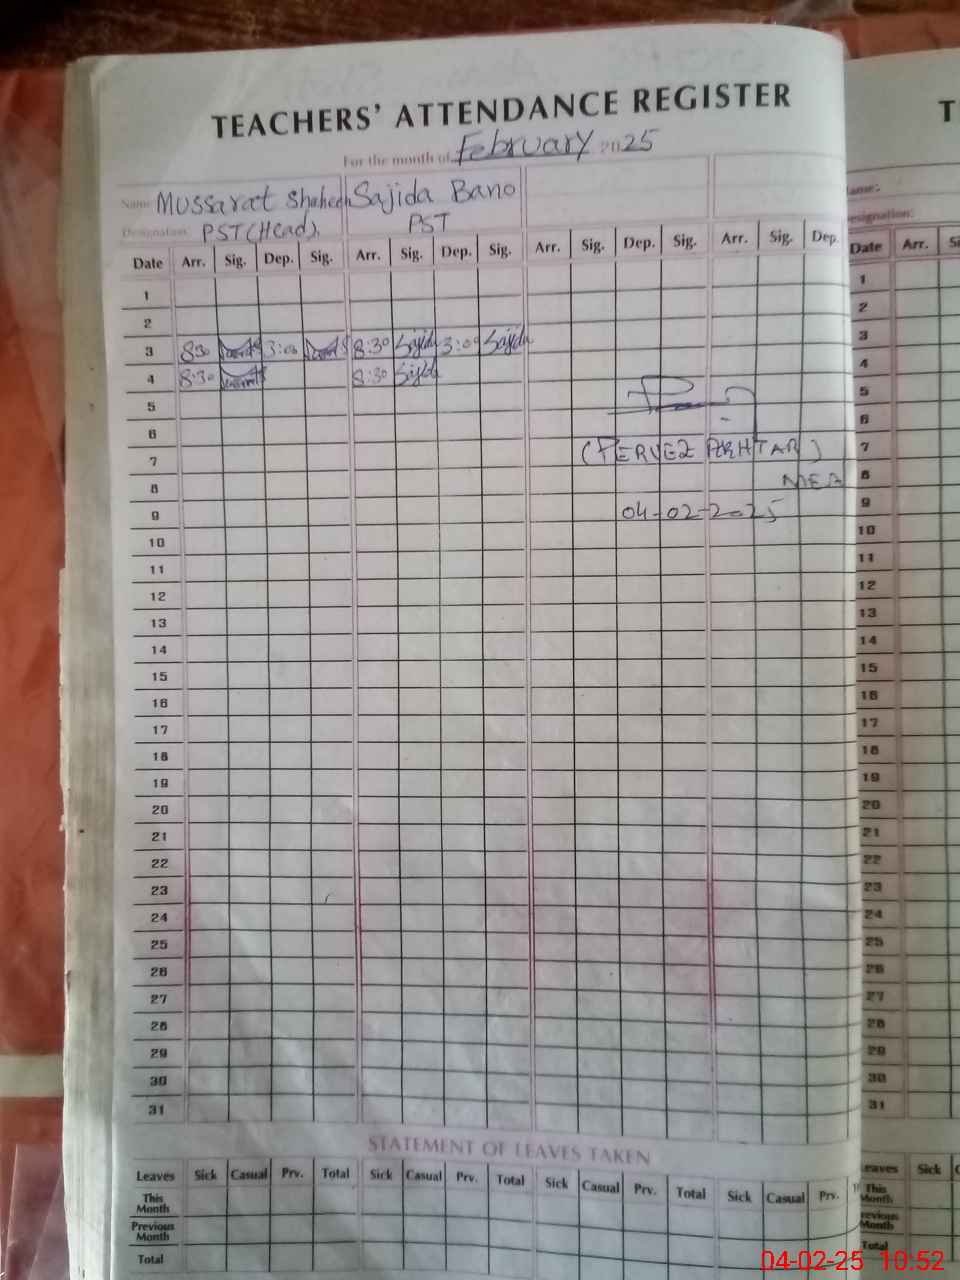 TEACHERS' ATTENDANCE REGISTER
For the month of February 2025
Name: Mussarat Shaheen Sajida Bano
Designation: PST (Head). PST
Date Arr. Sig. Dep. Sig. Arr. Sig. Dep. Sig. Arr. Sig. Dep. Sig. Arr. Sig. Dep.
1
2
3 8:30 3:00 8:30 Sajida 3:00 Sajida
4 8:30 8:30 Sajida
5
6
7 (PERVEZ AKHTAR)
8
9 04-02-2025
10
11
12
13
14
15
16
17
18
19
20
21
22
23
24
25
26
27
28
29
30
31
STATEMENT OF LEAVES TAKEN
Leaves Sick Casual Prv. Total Sick Casual Prv. Total Sick Casual Prv. Total Sick Casual Prv.
This Month
Previous Month
Total
T
ame:
esignation:
Date Arr. S
1
2
3
4
5
6
7
8
9
10
11
12
13
14
15
16
17
18
19
20
21
22
23
24
25
26
27
28
29
30
31
eaves Sick C
This Month
revious Month
Total
04-02-25 10:52